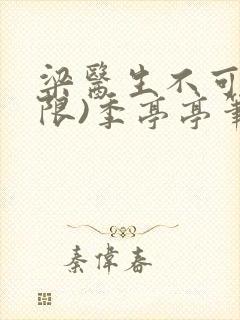 梁醫生不可
限)季亭亭筆
秦偉春